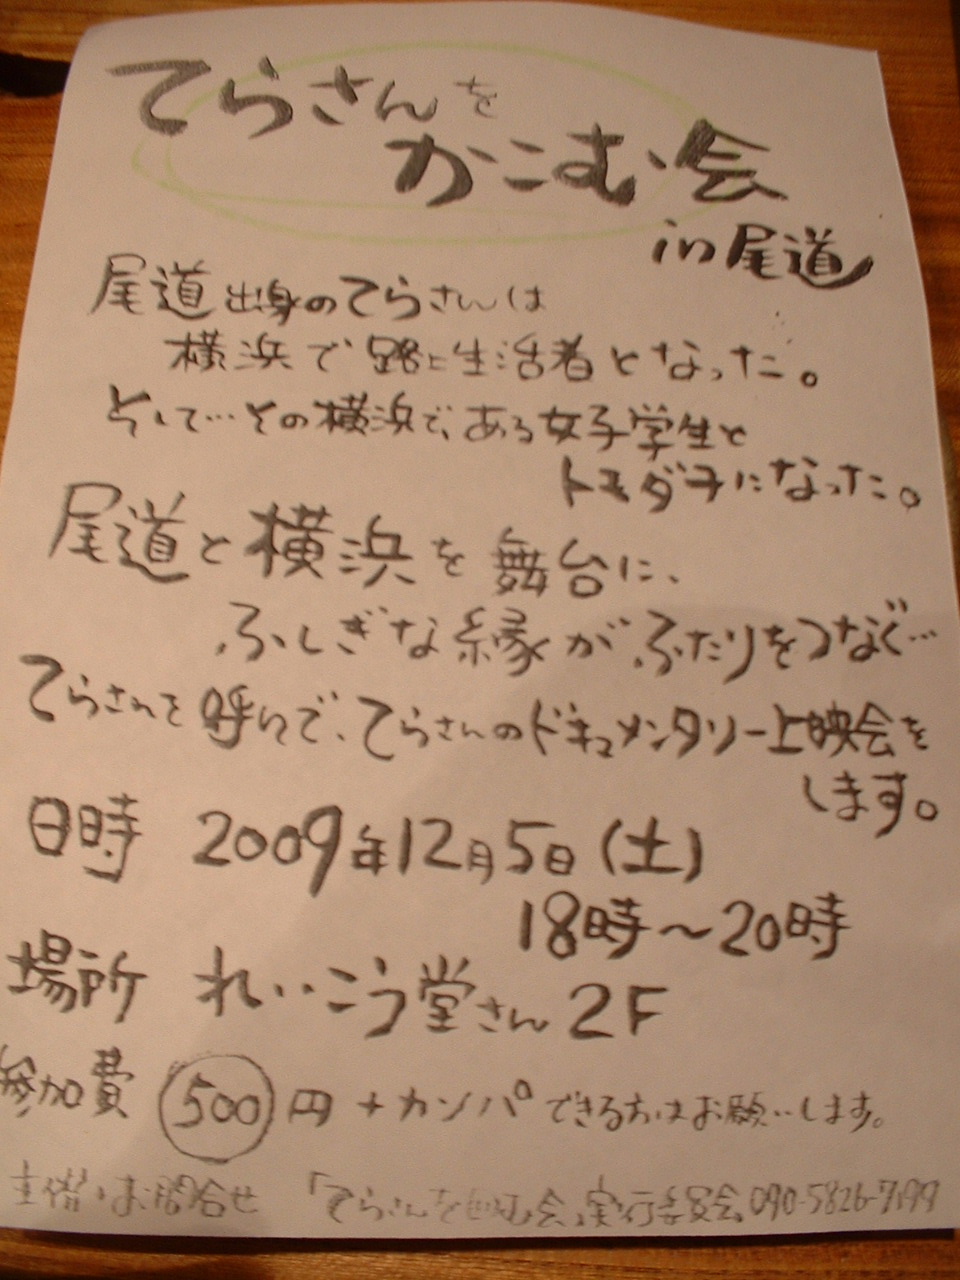 てらさんを
かこむ会
in 尾道
尾道出身のてらさんは
横浜で路上生活者となった。
そして…その横浜で、ある女子学生と
トモダチになった。
尾道と横浜を舞台に、
ふしぎな縁がふたりをつなぐ…
てらさんを呼んで、てらさんのドキュメンタリー上映会を
します。
日時 2009年12月5日(土)
18時～20時
場所 れいこう堂さん2F
参加費 500円+カンパできる方はお願いします。
主催・お問合せ 「てらさんを囲む会」実行委員会 090-5826-7199